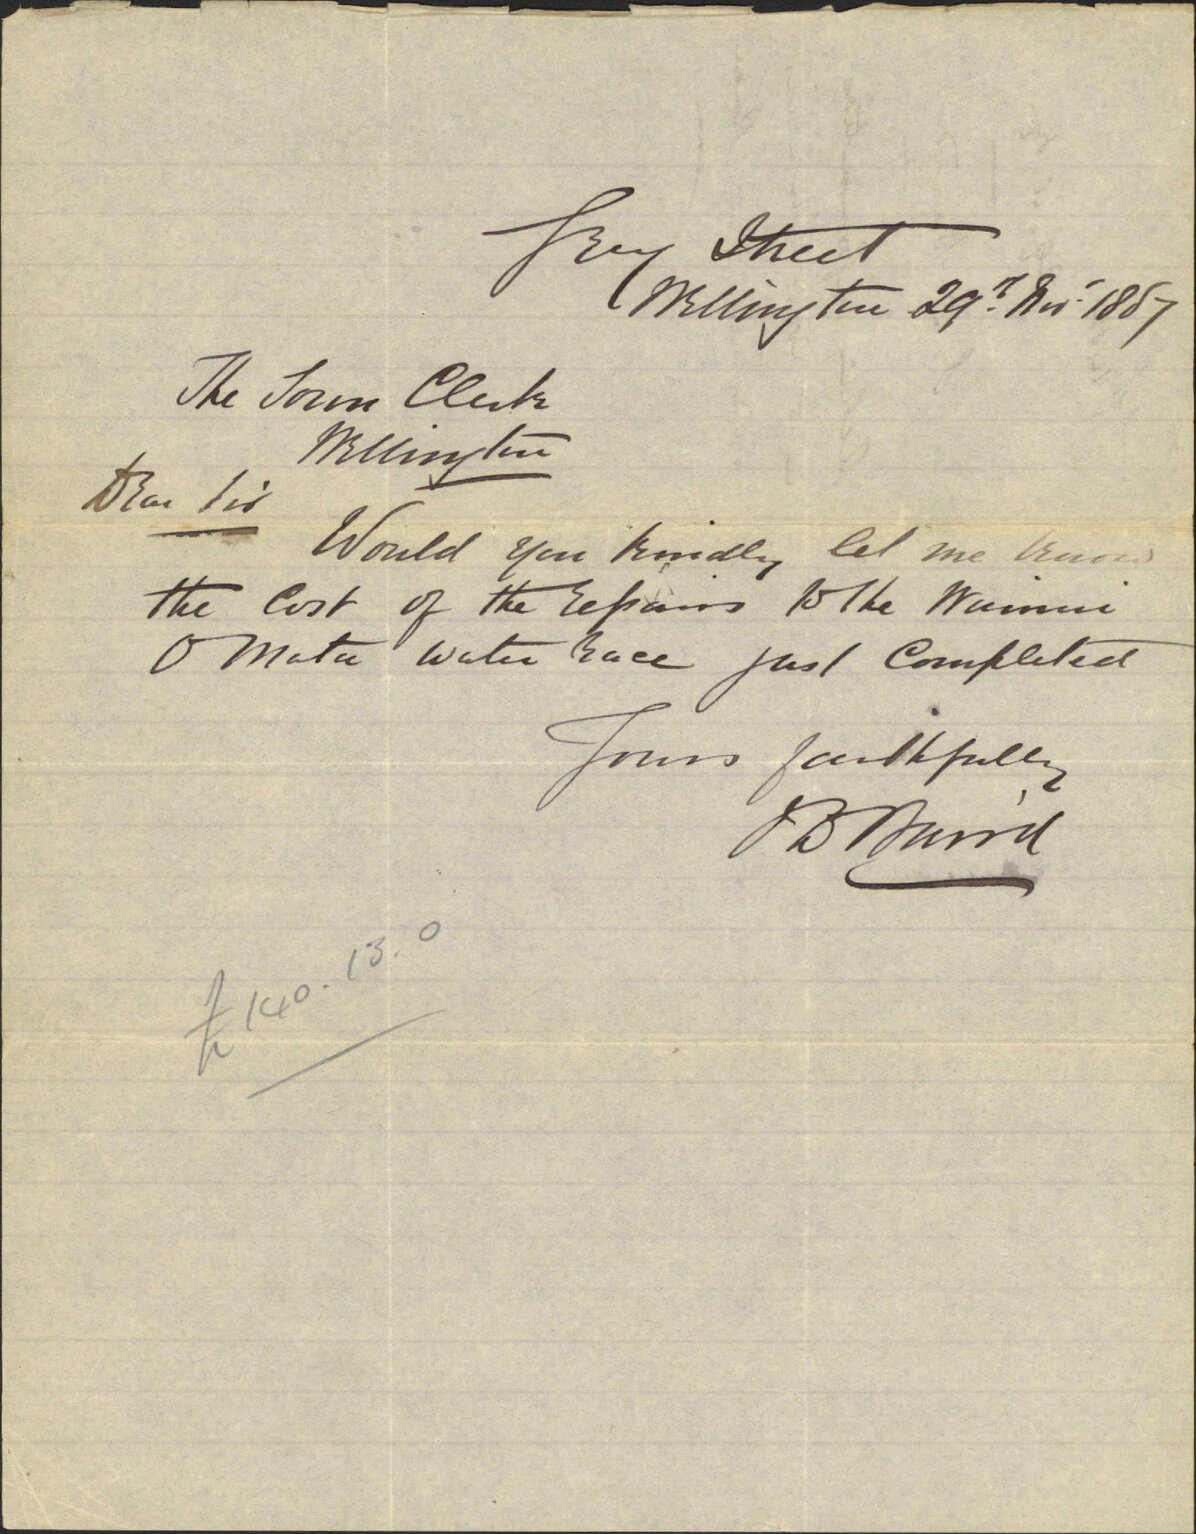 Grey Street
Wellington 29th Nov 1887
The Town Clerk
Wellington
Dear Sir
Would you kindly let me know
the Cost of the repairs to the Wainui
O Mata water race just Completed
Yours faithfully
J B Barrid
£140.13.0